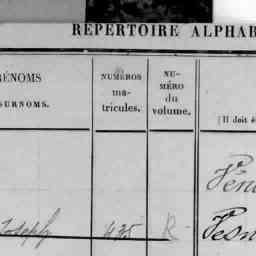 RÉPERTOIRE ALPHAB
RÉNOMS
SURNOMS.
NUMÉROS
ma-
tricules.
NU-
MÉRO
du
volume.
[Il doit ê
Joseph
435
R